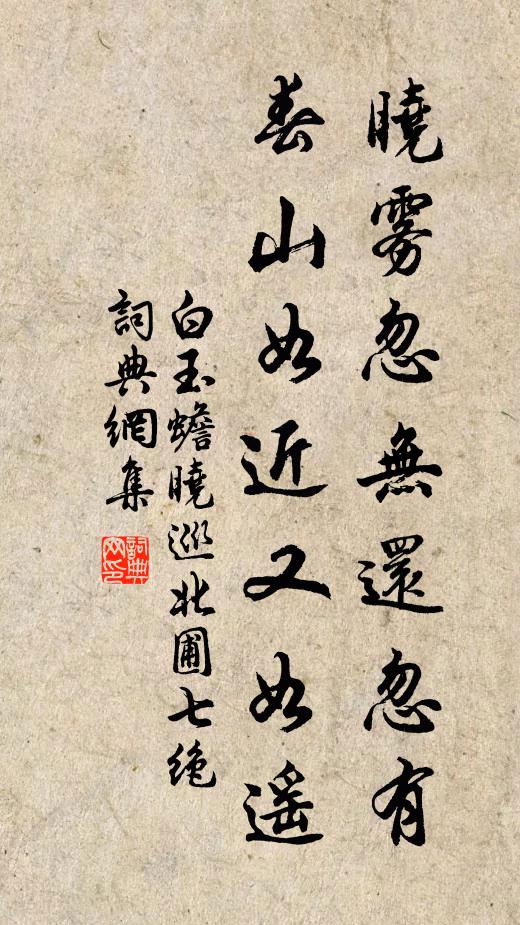 曉雾忽無還忽有
春山如近又如遥
白玉蟾曉巡北圃七绝
詞典網集
詞典网印